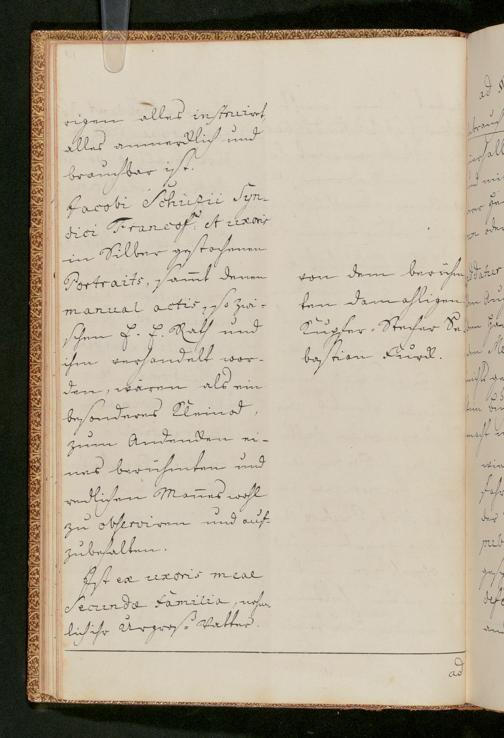 rigen alles instruirt,
alles anmercklich und
brauchbar ist.
Jacobi Schüzii Syn-
dici Francof. et uxoris
in Silber gestochenen
Portraits, sam̅t denen
manual actis, so zwi-
schen E. E. Rath und
ihm verhandelt wor-
den, wären als ein
besonderes Kleinod,
zum Andencken ei-
nes berühmten und
redlichen Man̅es wohl
zu observiren und auf-
zubehalten.
Ist ex uxoris meae
Secundae Familia, nehm-
lich ihr Urgross Vatter.
von dem berühm
ten damahligen
Kupfer-Stecher Se
bastian Furck.
ad
ad